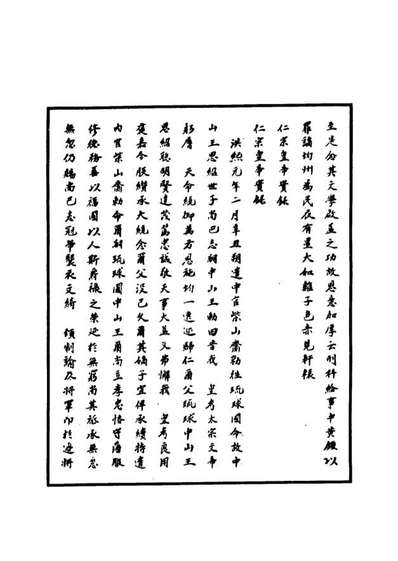 至是分其文學啟益之功故恩意加厚云刑科給事中黃以
罪謫均州為民夜有星大如雞子色赤見軒轅
仁宗皇帝實錄
仁宗皇帝實錄
洪熙元年二月辛丑朔遣中官柴山齎勑往琉球國命故中
山王思紹世子尚巴志嗣中山王勑曰昔我 皇考太宗文帝
躬膺 天命統御萬方恩施均一遐邇歸仁爾父琉球中山王
思紹聰明賢達茂篤忠誠敬天事大益久弗懈我 皇考良用
褒嘉今朕纘承大統念爾父沒已久爾其嫡子宜俾承續特遣
內官柴山齎勑命爾嗣琉球國中山王爾尚立孝忠恪守藩服
修德務善以福國以人斯爵祿之榮延於無窮尚其祗承無怠
無忽仍賜尚巴志冠帶襲衣文綺 頒制諭及將軍印於邊將